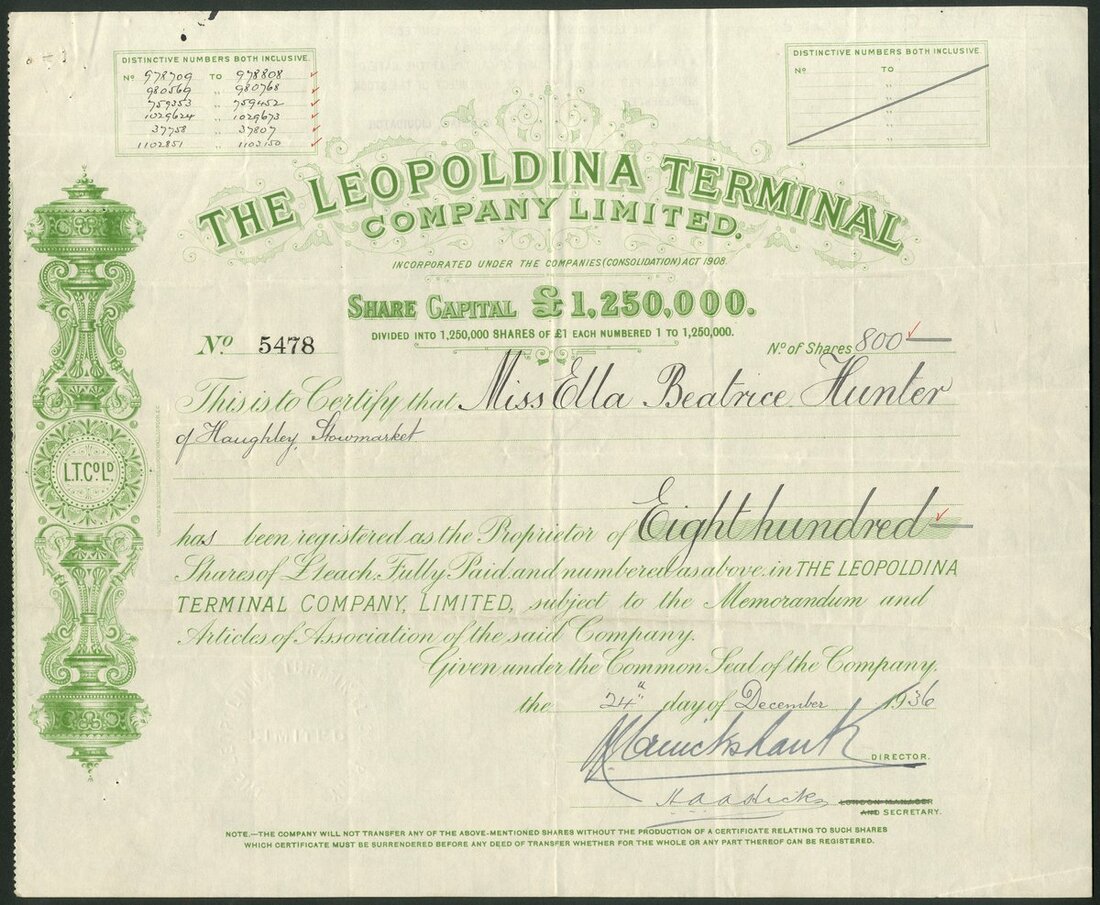 DISTINCTIVE NUMBERS BOTH INCLUSIVE.
No 978709 TO 978808
980569 " 980768
759353 " 759452
1029624 " 1029673
37758 " 37807
1102851 " 1103150
DISTINCTIVE NUMBERS BOTH INCLUSIVE.
No TO
THE LEOPOLDINA TERMINAL
COMPANY LIMITED.
INCORPORATED UNDER THE COMPANIES (CONSOLIDATION) ACT 1908.
SHARE CAPITAL £1,250,000.
DIVIDED INTO 1,250,000 SHARES OF £1 EACH NUMBERED 1 TO 1,250,000.
No 5478
No of Shares 800
This is to Certify that Miss Ella Beatrice Hunter
of Haughley, Stowmarket
L.T.Co.Ld.
has been registered as the Proprietor of Eight hundred
Shares of £1 each, Fully Paid, and numbered as above, in THE LEOPOLDINA
TERMINAL COMPANY, LIMITED, subject to the Memorandum and
Articles of Association of the said Company.
Given under the Common Seal of the Company,
the 24th day of December 1936
DIRECTOR.
LONDON MANAGER
AND SECRETARY.
NOTE.—THE COMPANY WILL NOT TRANSFER ANY OF THE ABOVE-MENTIONED SHARES WITHOUT THE PRODUCTION OF A CERTIFICATE RELATING TO SUCH SHARES
WHICH CERTIFICATE MUST BE SURRENDERED BEFORE ANY DEED OF TRANSFER WHETHER FOR THE WHOLE OR ANY PART THEREOF CAN BE REGISTERED.